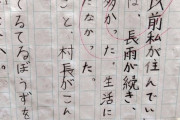 以前私が住んでい
は、長雨が続き、
多かった。生活に
たなかった。
こと、村長がこん
てるてるぼうずを